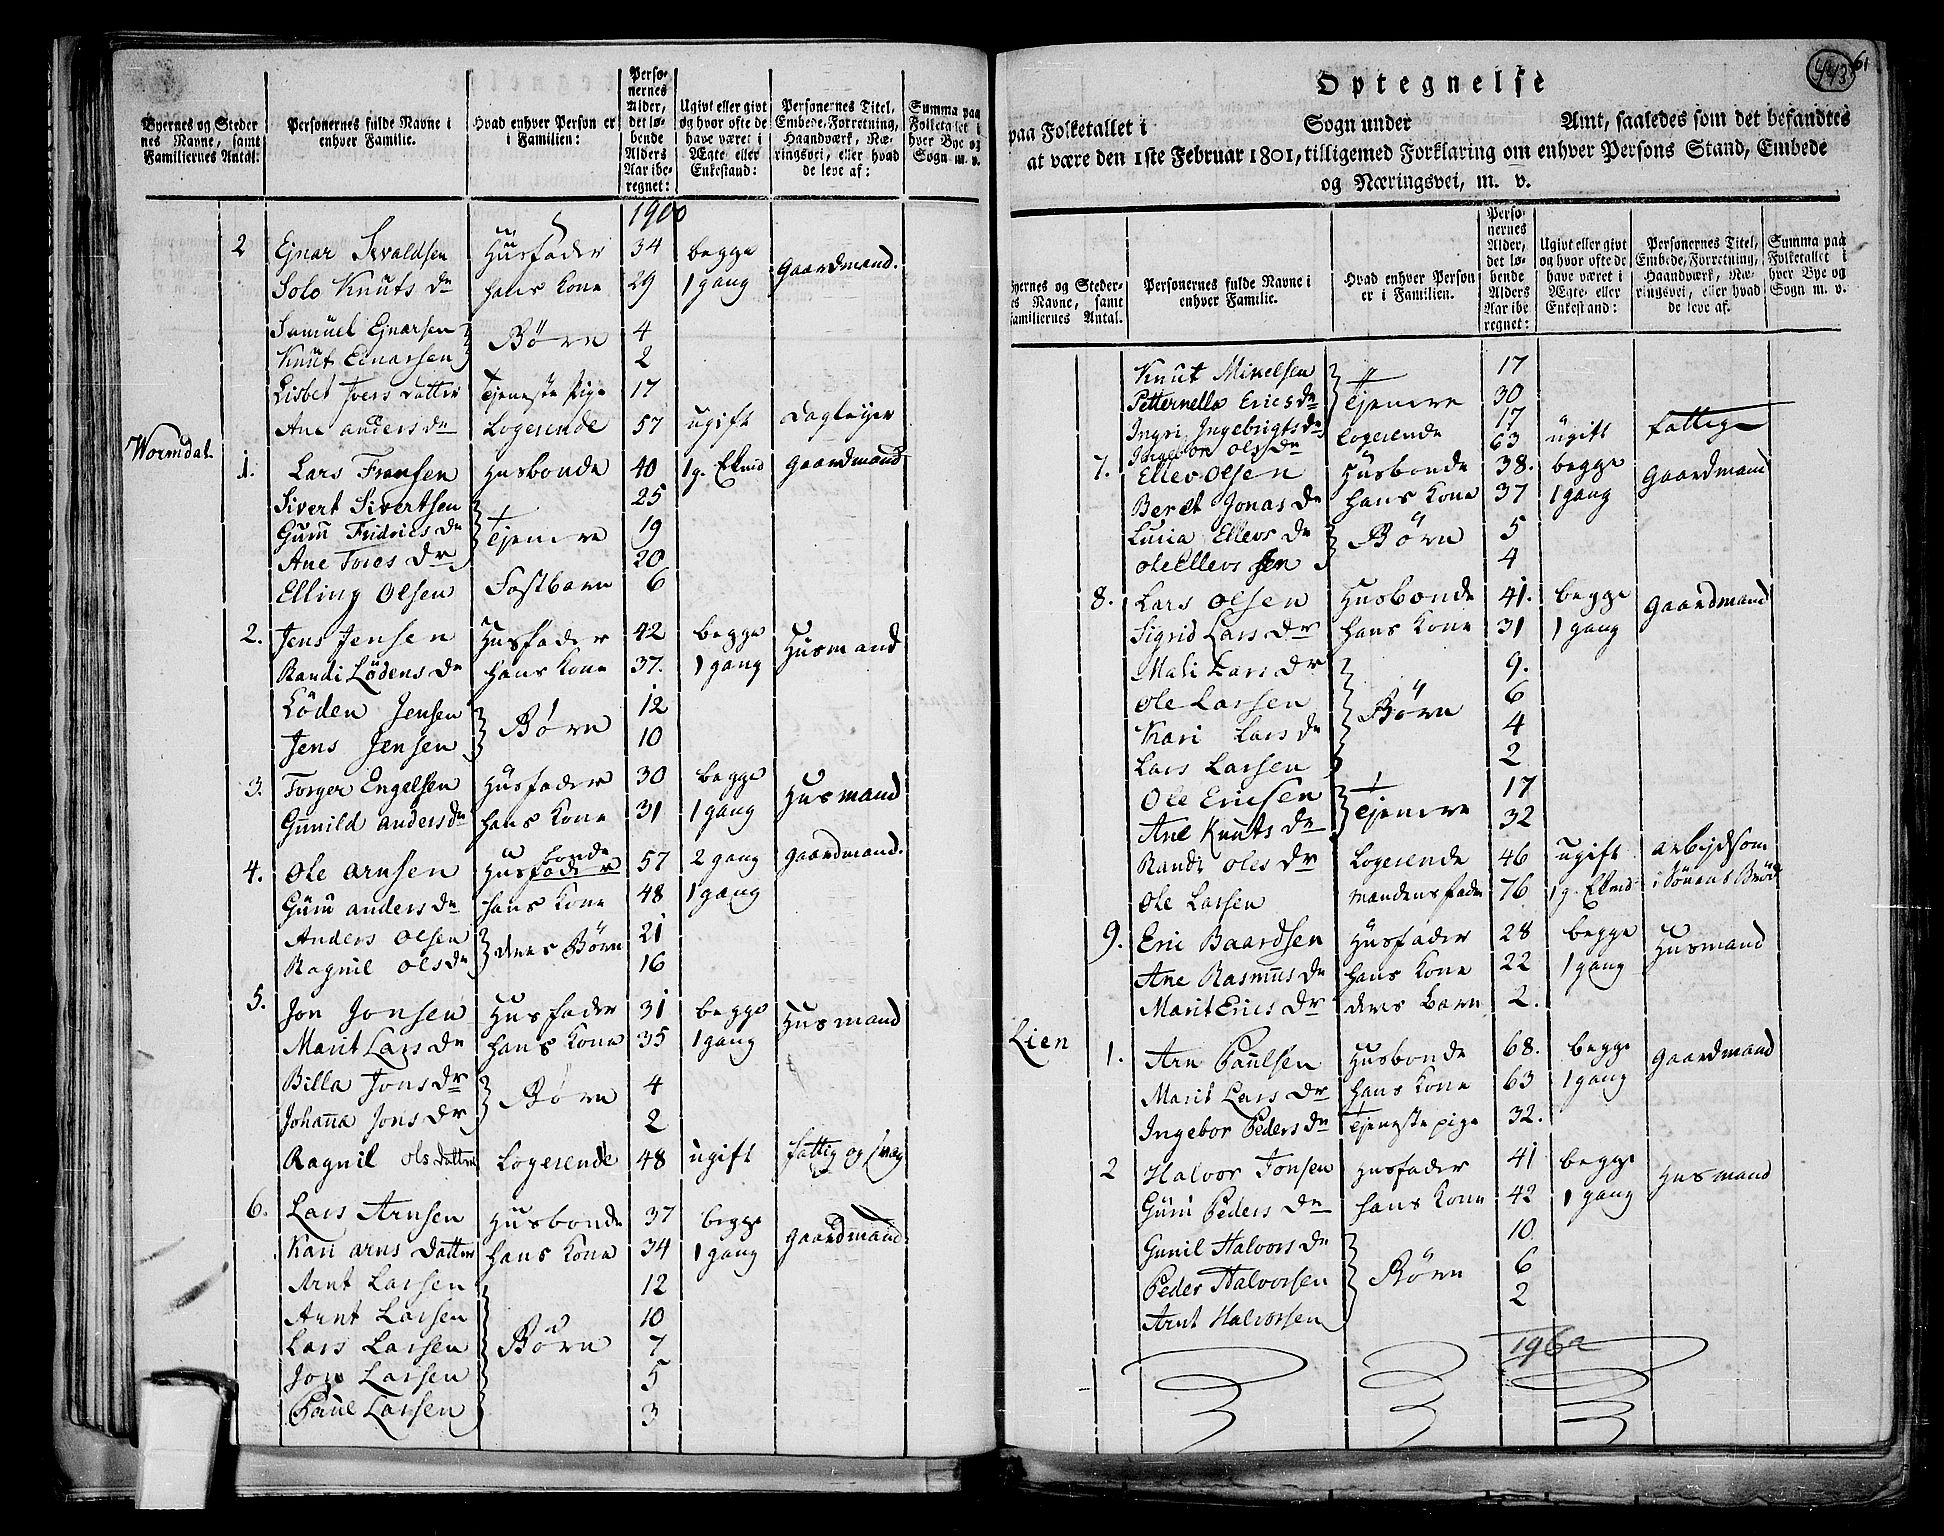 Byernes og Steder
nes Navne, samt
Familiernes Antal.
Personernes fulde Navne i
enhver Familie.
Hvad enhver Person er
i Familien:
Perso-
nernes
Alder,
det lø-
bende
Alders
Aar ibe-
regnet:
Ugivt eller givt
og hvor ofte de
have været i
Ægte eller
Enkestand:
Personernes Titel,
Embede, Forretning,
Haandværk, Næ-
ringsvei, eller hvad
de leve af:
Summa paa
Folketallet i
hver Bye og
Sogn m. v.
1900
2 Ejnar Sivaldsen Husfader 34 begge Gaardmand.
Solo Knuts Dr hans Kone 29 1 gang
Samuel Ejnarsen Børn 4
Knut Einarsen 2
Lisbet Joers Datter Tjeneste Pige 17
Ane Anders Dr Logerende 57 ugift Dagløyer
Wormdal
1. Lars Fransen Husbonde 40 1 g. Ekmd Gaardmand
Sivert Sivertsen 25
Guru Fridrics Dr Tjenere 19
Ane Tores Dr 20
Elling Olsen Fostbarn 6
2. Jens Jensen Husfader 42 begge Husmand
Randi Lødens Dr hans Kone 37. 1 gang
Løden Jensen Børn 12
Jens Jensen 10
3. Torger Engelsen Husfader 30 begge Husmand
Gunnild Anders Dr hans Kone 31 1 gang
4. Ole Arnsen Husfader bonde 57 2 gang Gaardmand.
Guru Anders Dr hans Kone 48 1 gang
Anders Olsen deres Børn 21
Ragnil Ols Dr 16
5. Jon Jonsen Husfader 31 begge Husmand
Marit Lars Dr hans Kone 35 1 gang
Billa Jons Dr Børn 4
Johanna Jons Dr 2
Ragnil Ols Datter Logerende 48 ugift fattig og svag
6. Lars Arnsen Husbonde 37 begge Gaardmand
Kari Arns Datter hans Kone 34 1 gang
Arnt Larsen 12
Arnt Larsen 10
Lars Larsen Børn 7
Jon Larsen 5
Paul Larsen 3
443
61
Optegnelse
paa Folketallet i Sogn under Amt, saaledes som det befandtes
at være den 1ste Februar 1801, tilligemed Forklaring om enhver Persons Stand, Embede
og Næringsvei, m. v.
Byernes og Steder-
es Navne, samt
Familiernes Antal.
Personernes fulde Navne i
enhver Familie.
Hvad enhver Person
er i Familien.
Perso-
nernes
Alder,
det lø-
bende
Alders
Aar ibe-
regnet:
Ugivt eller givt
og hvor ofte de
have været i
Ægte- eller
Enkestand:
Personernes Titel,
Embede, Forretning,
Haandværk, Næ-
ringsvei, eller hvad
de leve af.
Summa paa
Folketallet i
hver Bye og
Sogn m. v.
Knut Mikelsen 17
Petternella Erics Dr Tjenere 30
Ingri Ingebrigts Dr 17
Ingebor Ols Dr logerende 63 ugift fattig
7. Ellev Olsen Husbonde 38. begge Gaardmand
Beret Jonas Dr hans Kone 37 1 gang
Lucia Ellevs Dr Børn 5
Ole Ellevsen 4
8. Lars Olsen Husbonde 41. begge Gaardmand
Sigrid Lars Dr hans Kone 31 1 gang
Mali Lars Dr 9.
Ole Larsen 6
Kari Lars Dr Børn 4
Lars Larsen 2
Ole Ericsen 17
Ane Knuts Dr Tjenere 32
Randi Oles Dr Logerende 46 ugift arbejdsom
Ole Larsen mandens fader 76 1 g. Ekmd i Sønens Brød
9. Eric Baardsen Husfader 28 begge Husmand
Ane Rasmus Dr hans Kone 22 1 gang
Marit Erics Dr deres Barn 2.
Lien
1. Arn Paulsen Husbonde 68. begge Gaardmand
Marit Lars Dr hans Kone 63 1 gang
Ingebor Peders Dr Tjeneste pige 32.
2 Halvor Jonsen Husfader 41 begge Husmand
Guru Peders Dr hans Kone 42 1 gang
Gunil Halvors Dr 10
Peder Halvorsen Børn 6
Arnt Halvorsen 2
1962